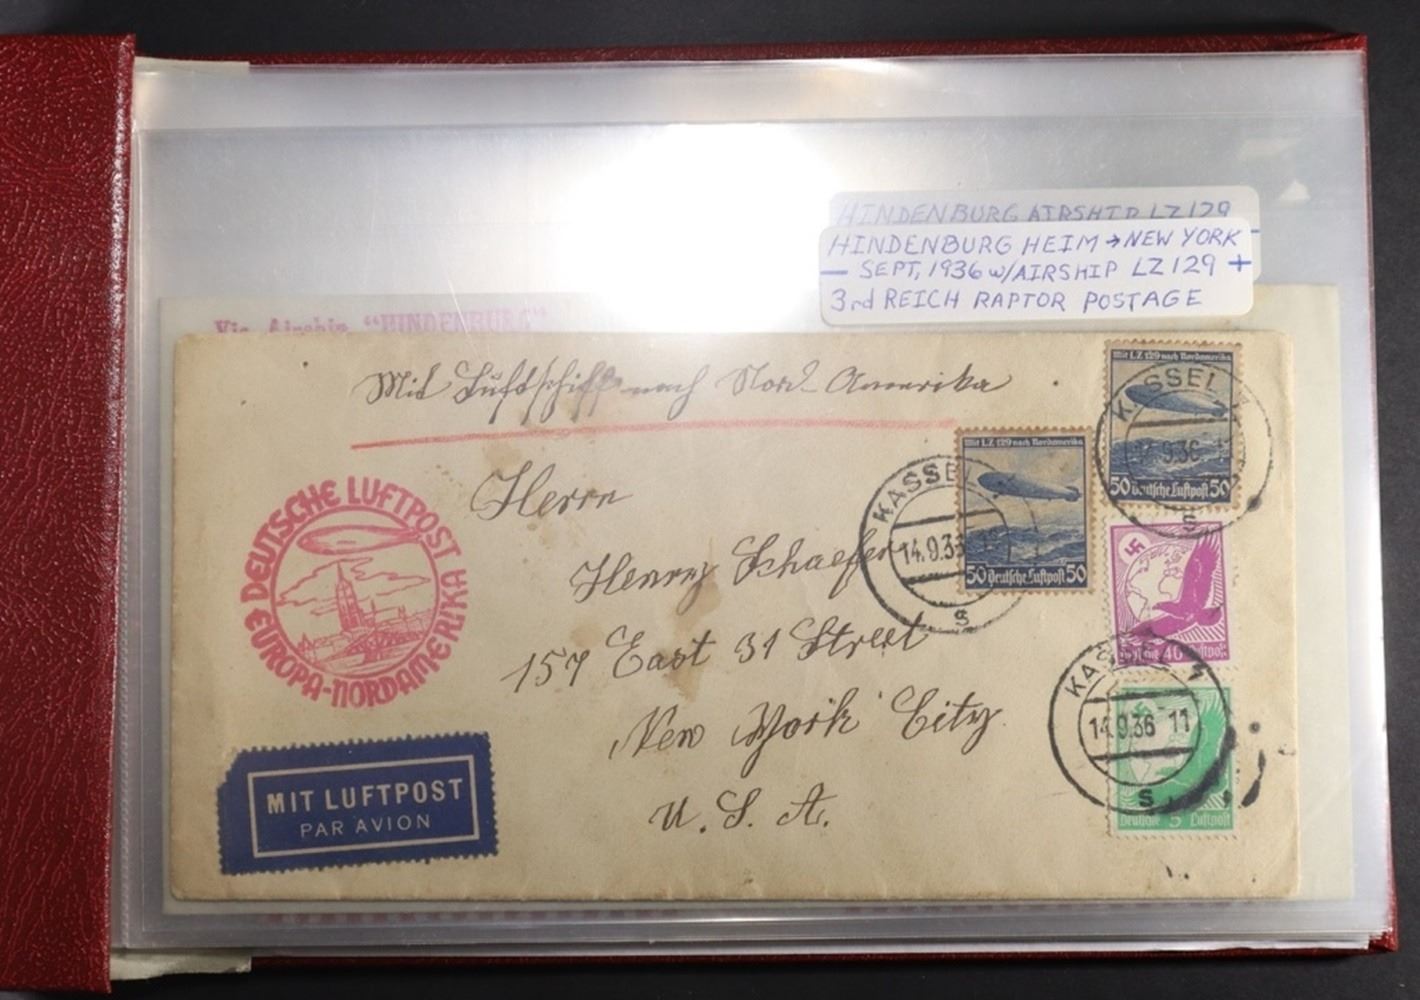 HINDENBURG AIRSHIP LZ 129
HINDENBURG HEIM → NEW YORK
— SEPT, 1936 w/AIRSHIP LZ 129 +
3rd REICH RAPTOR POSTAGE
Via Airship "HINDENBURG"
Mit Luftschiff nach Nord-Amerika
Herrn
Henry Schaefer
157 East 31 Street
New York City
U. S. A.
DEUTSCHE LUFTPOST
EUROPA-NORDAMERIKA
MIT LUFTPOST
PAR AVION
Mit LZ 129 nach Nordamerika
50 Deutsche Luftpost 50
KASSEL
9.36
s
Mit LZ 129 nach Nordamerika
50 Deutsche Luftpost 50
KASSEL
14.9.36
s
Deutsche 40 Luftpost
KASSEL
14.9.36 11
s
Deutsche 5 Luftpost